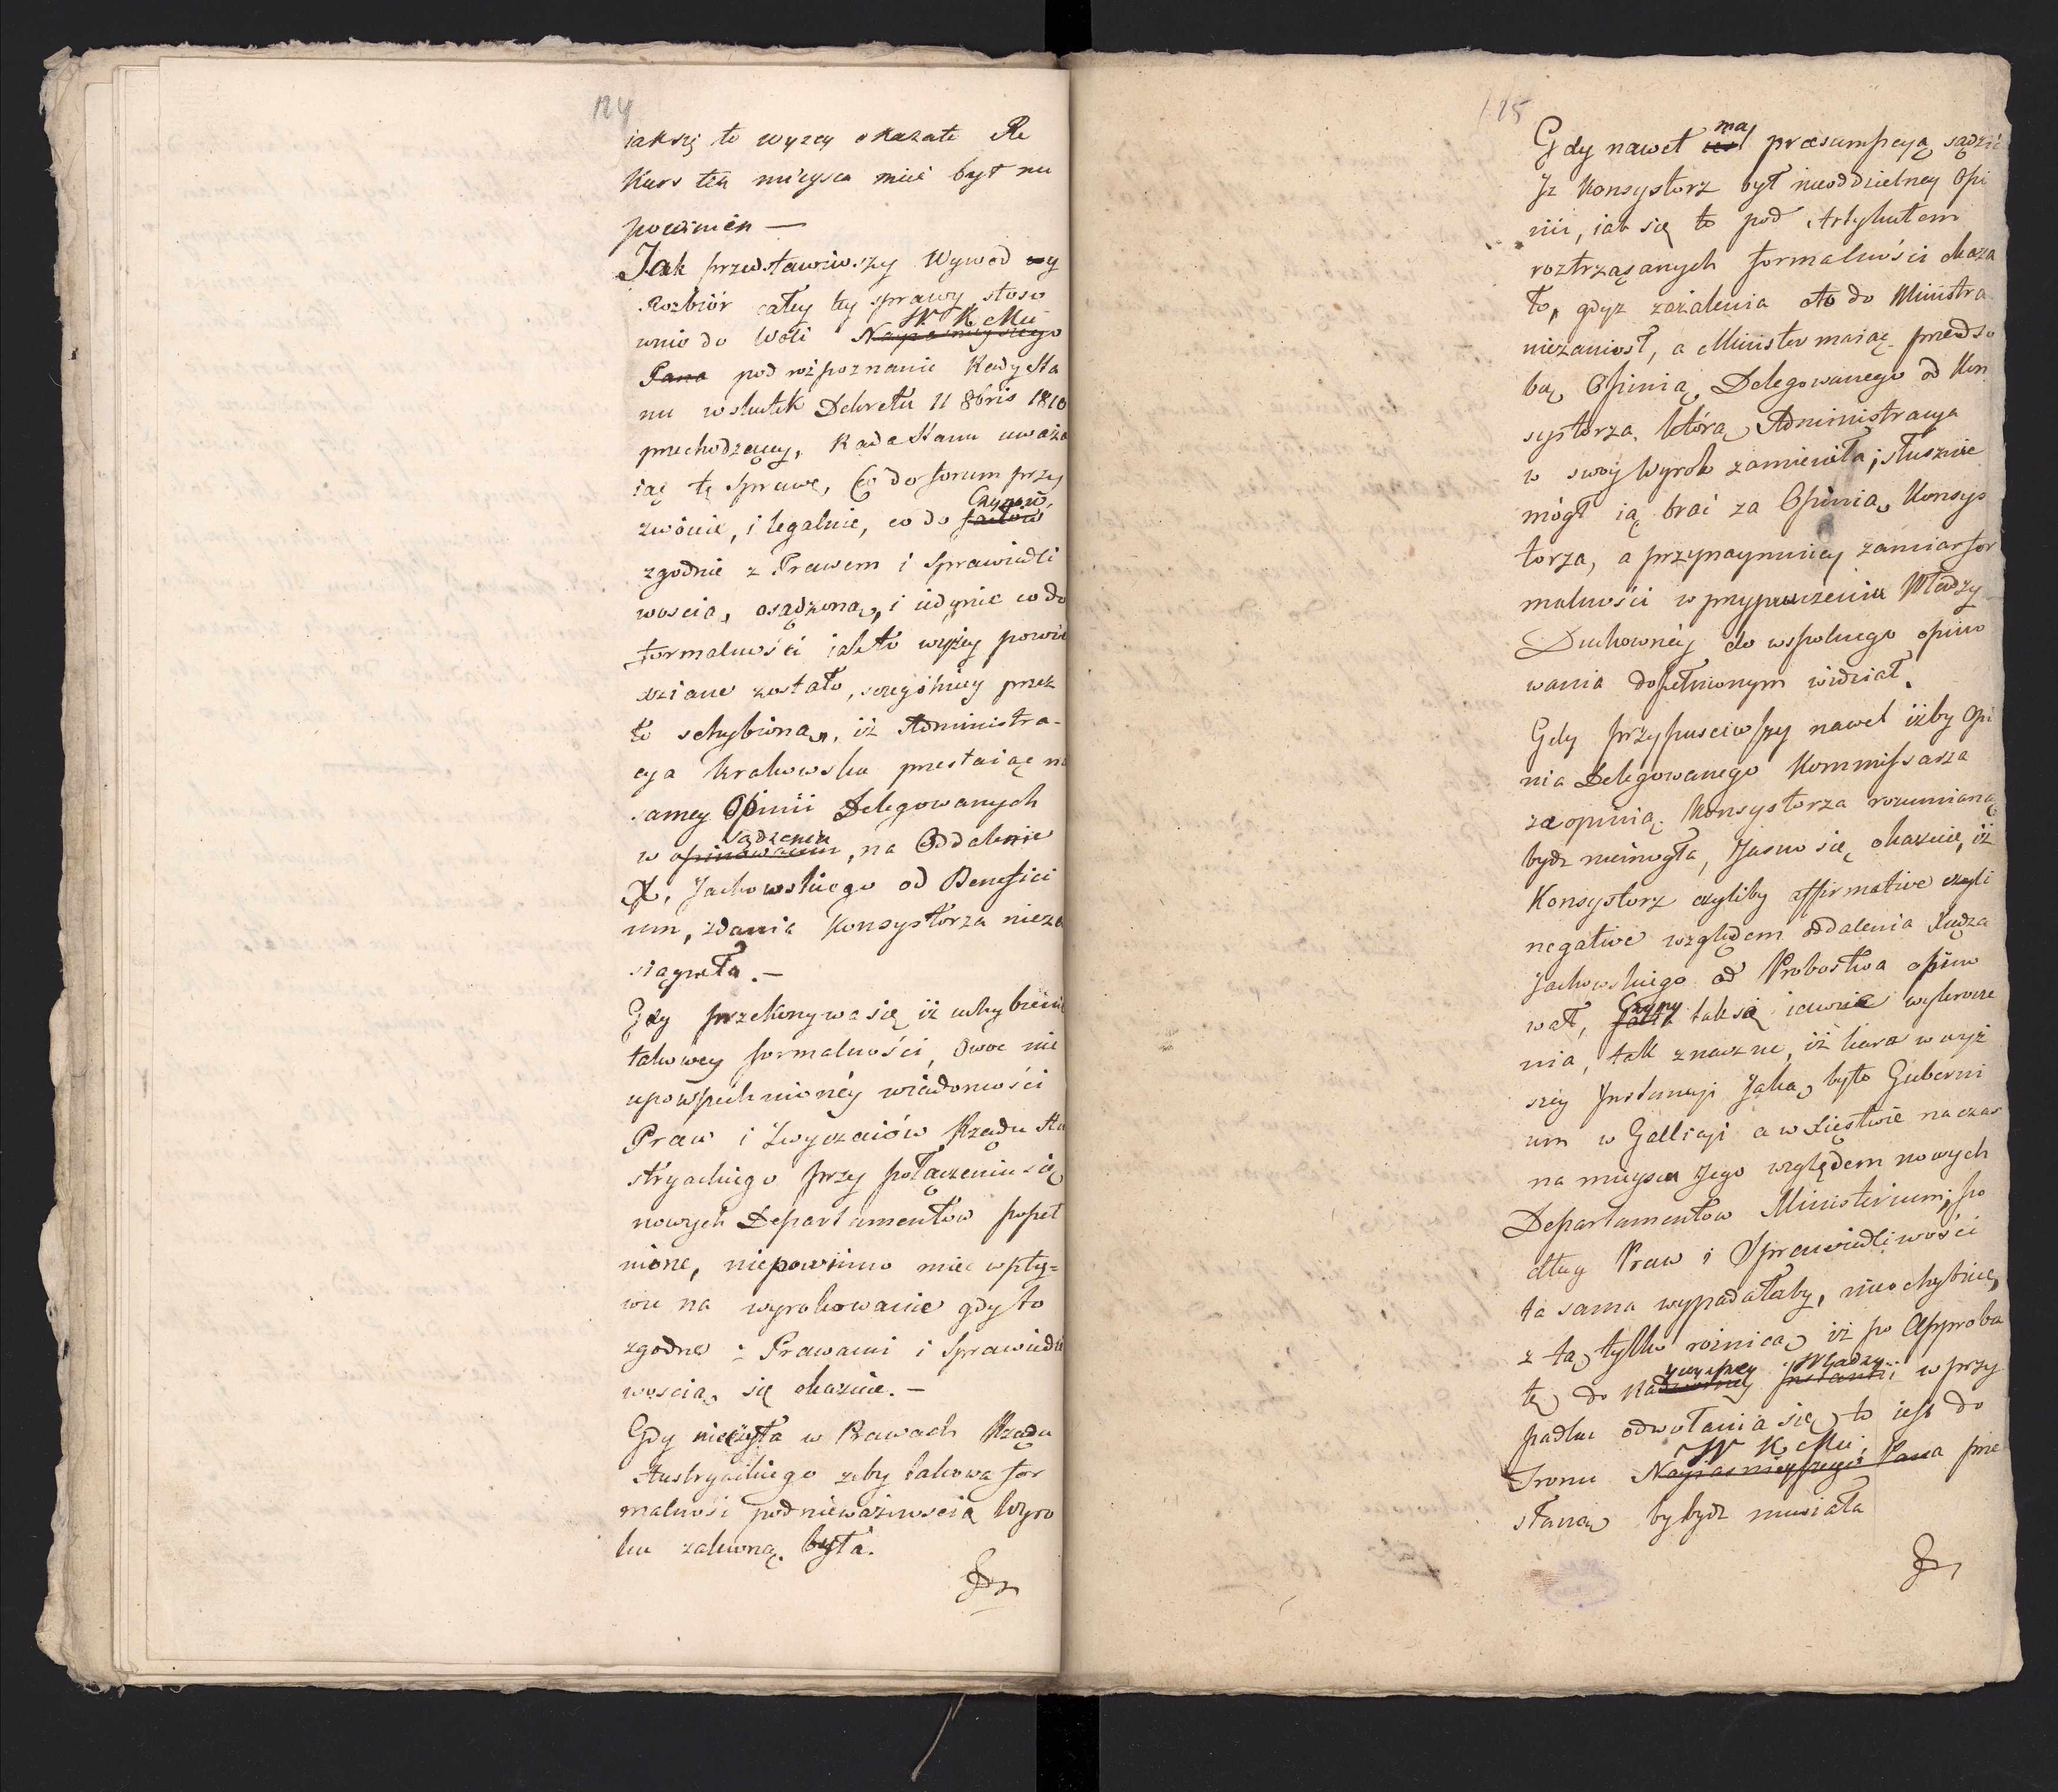 124
iak się to wyzey okazało Re
kurs ten mieysca mieć był nu
powinien —
Jak przedstawiwszy Wywód y
Rozbiór całey tey sprawy stoso
wnie do Woli Nayiaśnieyszego W K Mci
Pana pod rozpoznanie Rady Sta
nu w skutek Dekretu 11 8bris 1810
przechodzącey, Rada Stanu uważa
iąc tę Sprawę, Co do forum przy
zwoicie, i legalnie, co do factow Czynów,
zgodnie z Prawem i Sprawiedli
woscią, osądzoną, i iedynie co do
formalności iak to wyżey powie
dziane zostało, szczególniey przez
to uchybioną, iż Administra-
cya Krakowska przestaiąc na
samey Opinii Delegowanych
w opiniowaniu sądzeniu, na Oddalenie
X. Jachowskiego od Benefici
um, zdania Konsystorza nieza
siągnęła. —
Gdy przekonywa się iż uchybienie
takowey formalności, owoc nie
upowszechnioney wiadomości
Praw i Zwyczaiów Rządu Au
stryackiego przy połączeniu się
nowych Departamentów popeł
nione, niepowinno mieć wpły=
wu na wyrokowanie gdy to
zgodne z Prawami i Sprawiedli
woscią się okazuie. —
Gdy nie była w Prawach Rządu
Austryackiego żeby takowa for
malność pod nieważnoscią Wyro
ku zakonną była.
Gdy
125
Gdy nawet iest ma praesumpcyą sądzić
Iz Konsystorz był nieoddzielney Opi
nii, iak się to pod Artykułem
roztrząsanych formalności okaza
ło, gdyz zażalenia oto do Ministra
niezaniosł, a Minister maiąc przed so
bą Opinią Delegowanego od Kon
systorza, którą Administracya
w swoy Wyrok zamieniła; słusznie
mógł ią brać za Opinią Konsys
torza, a przynaymniey zamiar for
malności w przypuszczeniu Władzy
Duchowney do wspolnego opinio
wania dopełnionym widział.
Gdy przypusciwszy nawet iżby Opi
nia Delegowanego Kommissarza
za opinią Konsystorza rozumianą
bydz niemogła, Jasno się okazuie, iż
Konsystorz czyliby affirmative czyli
negative względem oddalenia Xiędza
Jachowskiego od Probostwa opinio
wał, facta Czyny tak są iawne wykrocze
nia, tak znaczne, iż kara w wyż
szey Instancyi Jaką było Guberni
um w Gallicyi a w Xięstwie na czas
na mieyscu Jego względem nowych
Departamentow Ministerium, po
dług Praw i Sprawiedliwości
ta sama wypadałaby, nieochybnie,
z tą tylko roznicą iż po Approba
tę do Nadworney Instancii Władzy w przy
padku odwołania się, to iest do
Tronu Nayiasnieyszego Pana W K Mci, prze
słaną by bydz musiała
Gdy